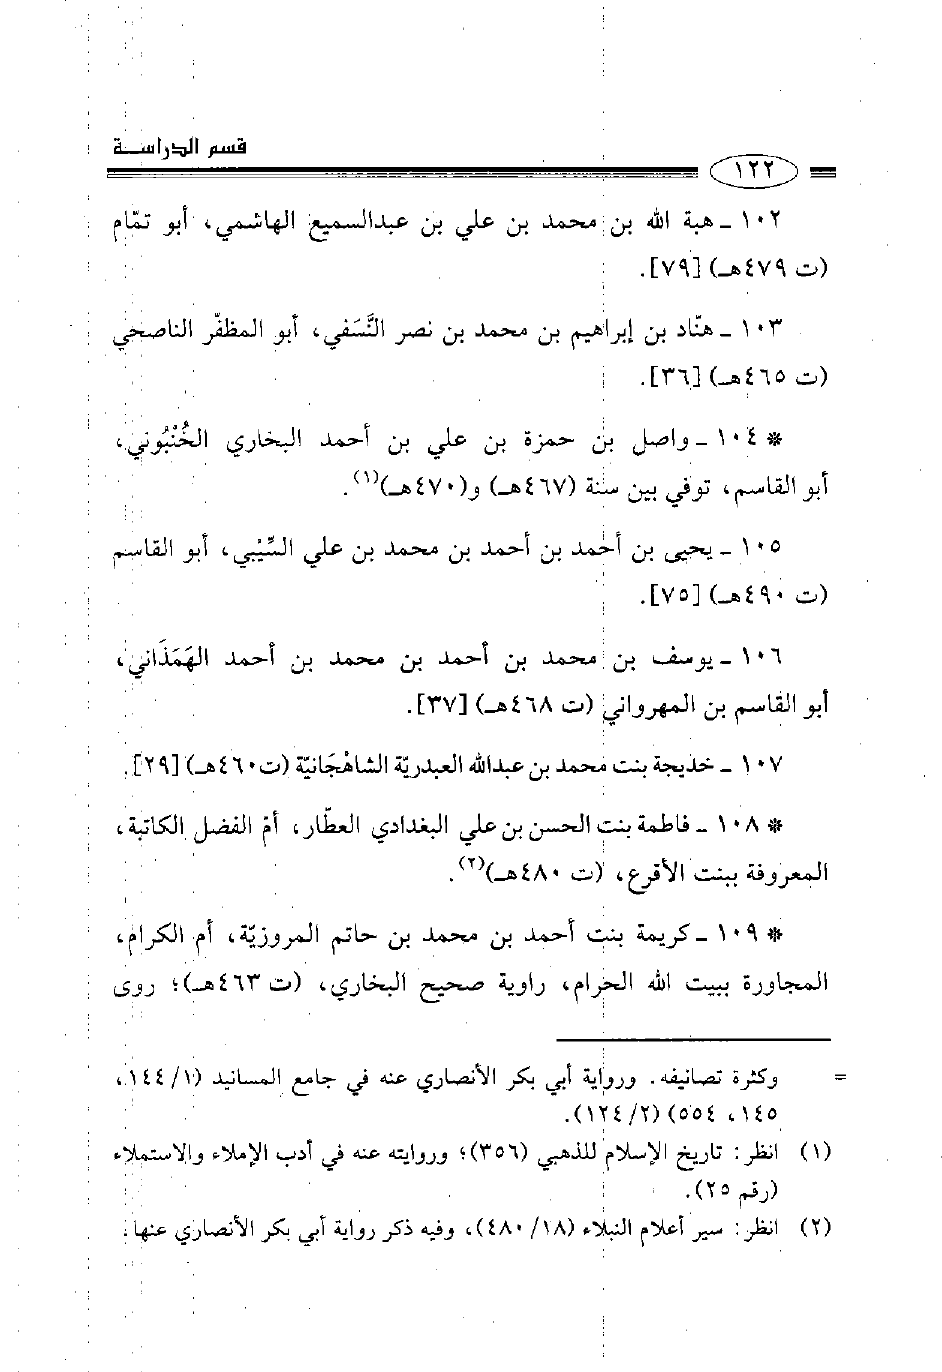 قسم الدراسة
١٢٢
١٠٢ - هبة الله بن محمد بن علي بن عبدالسميع الهاشمي، أبو تمّام
(ت ٤٧٩هـ) [٧٩].
١٠٣ - هنّاد بن إبراهيم بن محمد بن نصر النَّسَفي، أبو المظفّر الناصحي
(ت ٤٦٥هـ) [٣٦].
* ١٠٤ - واصل بن حمزة بن علي بن أحمد البخاري الخُنْبُوني،
أبو القاسم، توفي بين سنة (٤٦٧هـ) و(٤٧٠هـ)(١).
١٠٥ - يحيى بن أحمد بن أحمد بن محمد بن علي السِّيْبي، أبو القاسم
(ت ٤٩٠هـ) [٧٥].
١٠٦ - يوسف بن محمد بن أحمد بن محمد بن أحمد الهَمَذَاني،
أبو القاسم بن المهرواني (ت ٤٦٨هـ) [٣٧].
١٠٧ - خديجة بنت محمد بن عبدالله العبدريّة الشاهْجَانيّة (ت٤٦٠هـ) [٢٩].
* ١٠٨ - فاطمة بنت الحسن بن علي البغدادي العطّار، أمّ الفضل الكاتبة،
المعروفة ببنت الأقرع، (ت ٤٨٠هـ)(٢).
* ١٠٩ - كريمة بنت أحمد بن محمد بن حاتم المروزيّة، أم الكرام،
المجاورة ببيت الله الحرام، راوية صحيح البخاري، (ت ٤٦٣هـ)؛ روى
= وكثرة تصانيفه. ورواية أبي بكر الأنصاري عنه في جامع المسانيد (١/ ١٤٤،
١٤٥، ٥٥٤) (٢/ ١٢٤).
(١) انظر: تاريخ الإسلام للذهبي (٣٥٦)؛ وروايته عنه في أدب الإملاء والاستملاء
(رقم ٢٥).
(٢) انظر: سير أعلام النبلاء (١٨/ ٤٨٠)، وفيه ذكر رواية أبي بكر الأنصاري عنها.